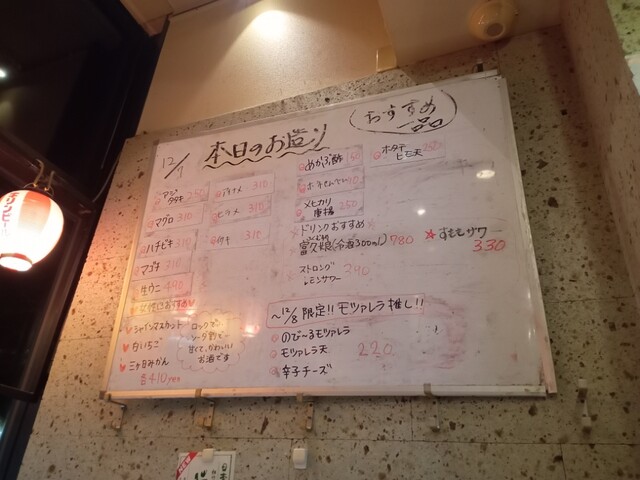 12/1 本日のお造り
おすすめ一品
アジタタキ 250
マグロ 310
ハチビキ 310
マゴチ 310
生ウニ 490
310
ヒラメ 310
310
めかぶ酢 150
メヒカリ唐揚 250
ホタテヒモ天 250
☆ドリンクおすすめ☆
富久娘(冷酒300ml) 780
ストロングレモンサワー 290
☆すももサワー 330
♥シャインマスカット
♥白いちご
♥三ヶ日みかん
各410yen
ロックでソーダ割で甘くて、かわいいお酒です
~12/8限定!!モッツァレラ推し!!
のび~るモッツァレラ
モッツァレラ天 220
辛子チーズ